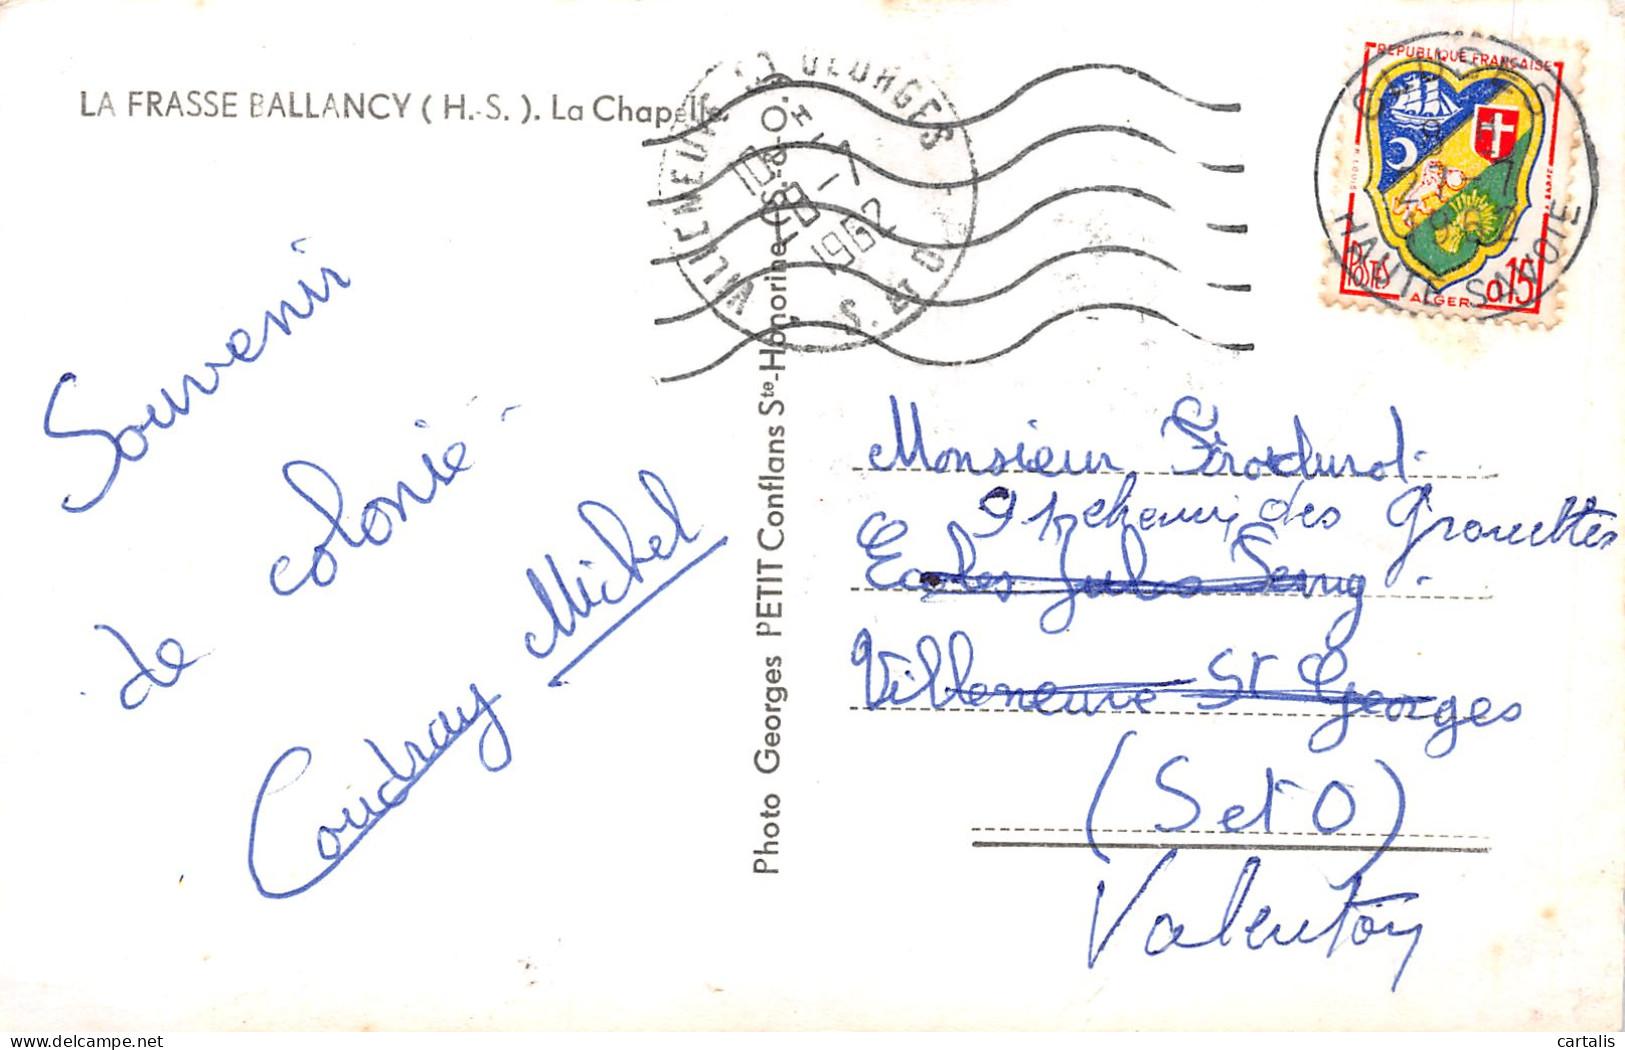 LA FRASSE BALLANCY ( H.-S. ). La Chapelle.
VILLENEUVE St GEORGES
S. & O.
10 H
28-7
1962
REPUBLIQUE FRANÇAISE
POSTES
ALGER
0,15
HAUTE SAVOIE
Souvenir
de colonie
Coudray Michel
Photo Georges PETIT Conflans Ste-Honorine (S.-&-O.
Monsieur
91 chemin des
Ecoles Jules Ferry
Villeneuve St Georges
(S et O)
Valenton
cartalis